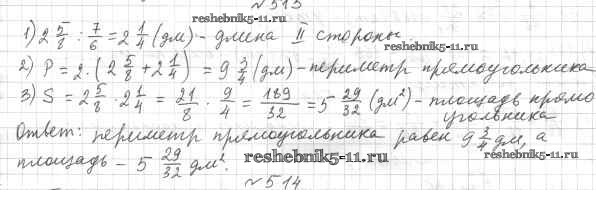 №513
1) 2 5/8 : 7/6 = 2 1/4 (дм) - длина II стороны
reshebnik5-11.ru
2) P = 2 · (2 5/8 + 2 1/4) = 9 3/4 (дм) - периметр прямоугольника
3) S = 2 5/8 · 2 1/4 = 21/8 · 9/4 = 189/32 = 5 29/32 (дм²) - площадь прямо
угольника
Ответ: периметр прямоугольника равен 9 3/4 дм, а
площадь - 5 29/32 дм².
reshebnik5-11.ru
reshebnik5-11.ru
№514